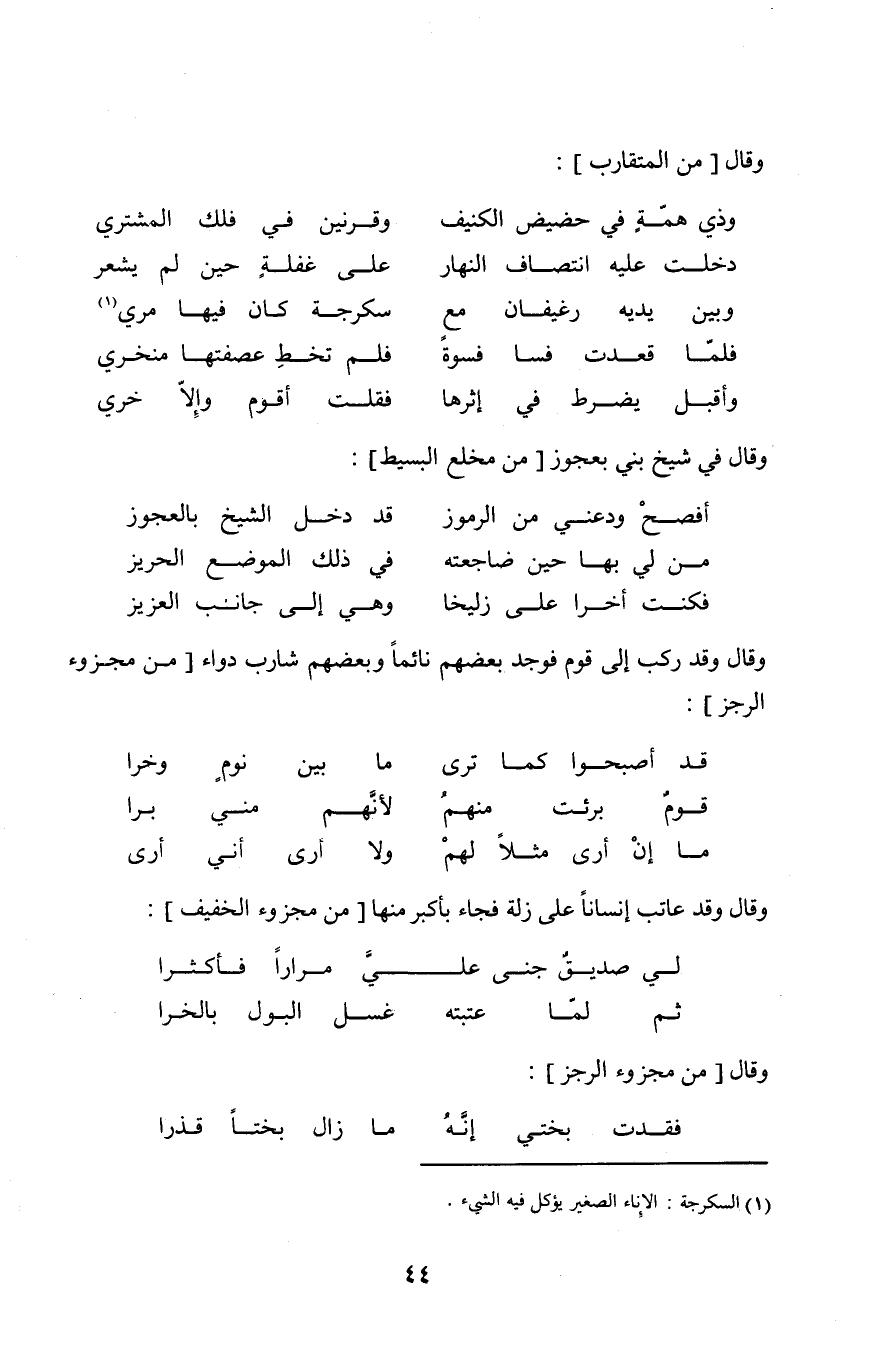 وقال [ من المتقارب ] :
وذي همّـةٍ في حضيض الكنيف وقـرنين في فلك المشتري
دخلـت عليه انتصـاف النهار علـى غفلـةٍ حين لم يشعر
وبين يديه رغيفـان مع سكرجـة كـان فيهـا مري(١)
فلمّـا قعـدت فسـا فسوةً فلـم تخـطِ عصفتهـا منخـري
وأقبـل يضـرط في إثرها فقلـت أقـوم وإلاّ خري
وقال في شيخ بني بعجوز [ من مخلع البسيط] :
أفصـحْ ودعنـي من الرموز قد دخـل الشيخ بالعجوز
مـن لي بهـا حين ضاجعته في ذلك الموضـع الحريز
فكنـت أخـرا علـى زليخا وهـي إلـى جانـب العزيز
وقال وقد ركب إلى قوم فوجد بعضهم نائماً وبعضهم شارب دواء [ مـن مجـزوء
الرجز ] :
قـد أصبحـوا كمـا ترى ما بين نومٍ وخرا
قـومٌ برئـت منهـمُ لأنَّهـم منـي بـرا
مـا إنْ أرى مثـلاً لهمْ ولا أرى أنـي أرى
وقال وقد عاتب إنساناً على زلة فجاء بأكبر منها [ من مجزوء الخفيف ] :
لـي صديـقٌ جنـى علـيَّ مـراراً فـأكثـرا
ثم لمّـا عتبته غسـل البـول بالخـرا
وقال [ من مجزوء الرجز ] :
فقـدت بختـي إنَّـهُ مـا زال بختـاً قـذرا
(١) السكرجة : الإناء الصغير يؤكل فيه الشيء .
٤٤